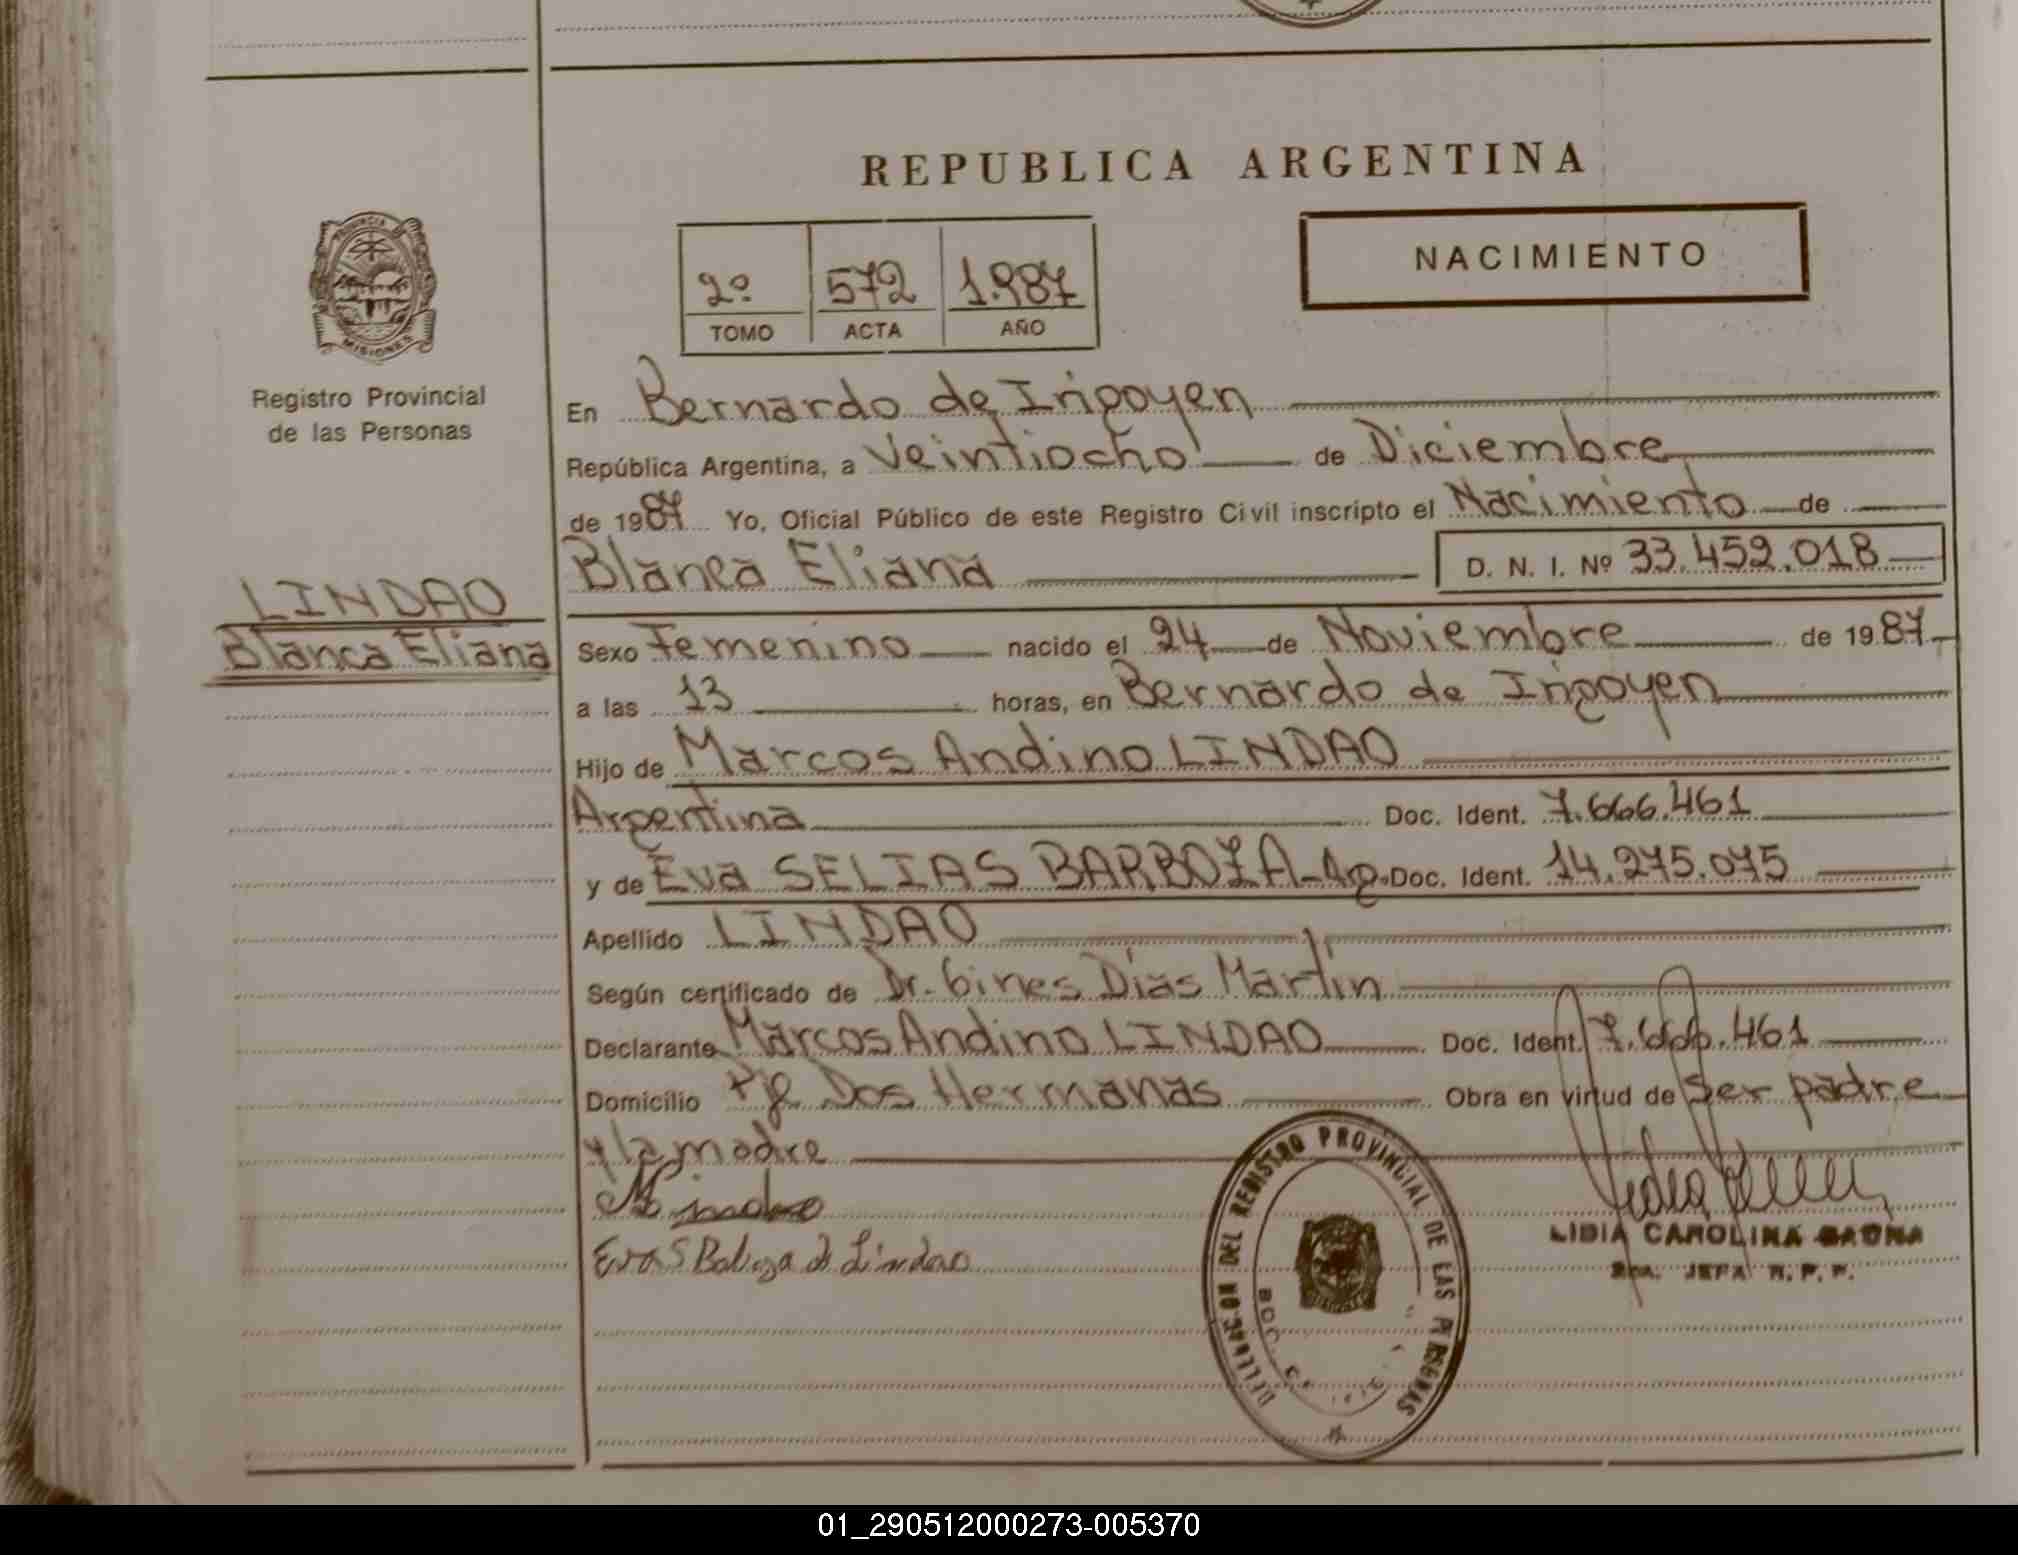 REPUBLICA ARGENTINA
NACIMIENTO
2º 572 1.987
TOMO ACTA AÑO
PROVINCIA
MISIONES
Registro Provincial
de las Personas
LINDAO
Blanca Eliana
En Bernardo de Irigoyen
República Argentina, a Veintiocho de Diciembre
de 1987 Yo, Oficial Público de este Registro Civil inscripto el Nacimiento de
Blanca Eliana D. N. I. Nº 33.459.018
Sexo Femenino nacido el 24 de Noviembre de 1987
a las 13 horas, en Bernardo de Irigoyen
Hijo de Marcos Andino LINDAO
Argentina Doc. Ident. 7.666.461
y de Eva SELIAS BARBOZA - Ag. Doc. Ident. 14.275.075
Apellido LINDAO
Según certificado de Dr. Gines Días Martín
Declarante Marcos Andino LINDAO Doc. Ident. 7.666.461
Domicilio Pje Dos Hermanas Obra en virtud de Ser padre
y la madre
Eva S Baboza de Lindao
DELEGACION DEL REGISTRO PROVINCIAL DE LAS PERSONAS
LIDIA CAROLINA GAONA
JEFA R. P. P.
01_290512000273-005370